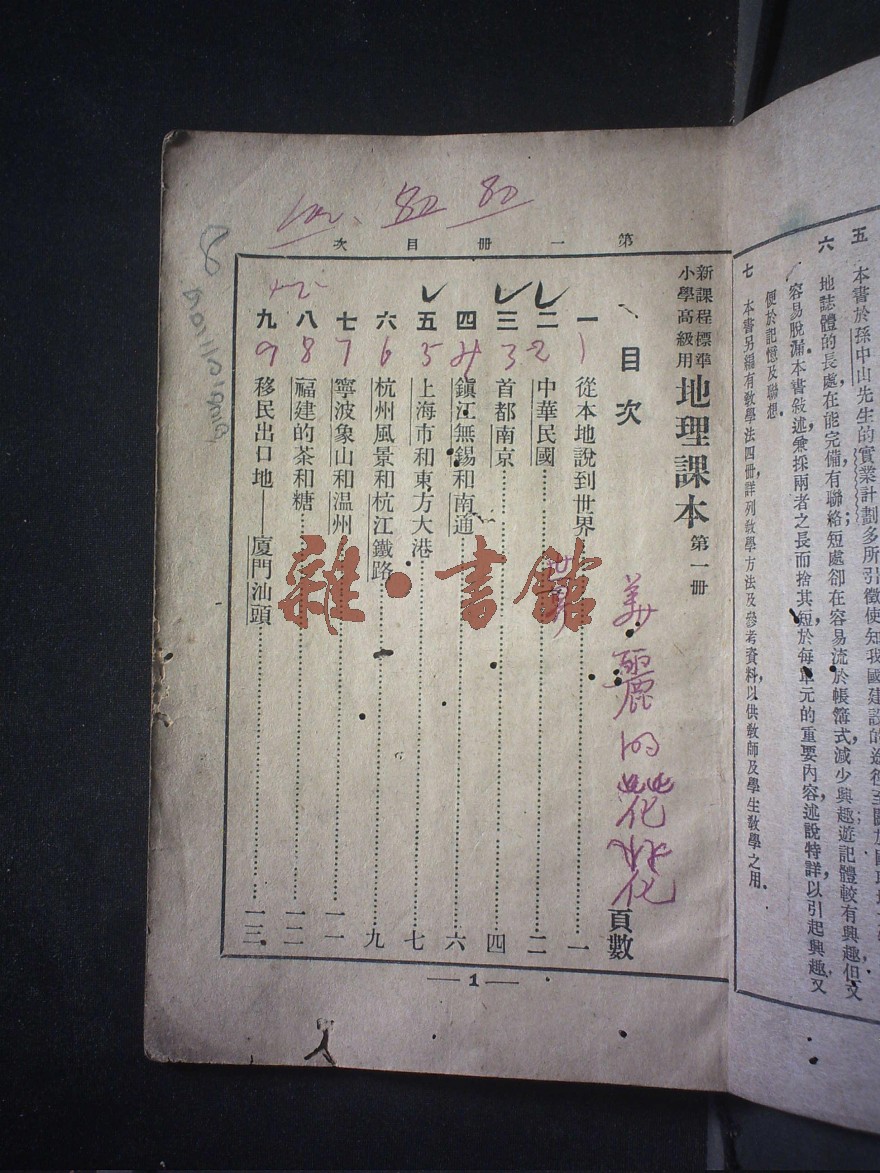 五 本書於孫中山先生的實業計劃多所引徵使知我國建設的途徑至
六 地誌體的長處在能完備有聯絡；短處卻在容易流於帳簿式減少興趣遊記體較有興趣；但又
容易脫漏本書敍述兼採兩者之長而捨其短於每單元的重要內容述說特詳以引起興趣，又
便於記憶及聯想．
七 本書另編有敎學法四冊詳列敎學方法及參考資料，以供敎師及學生敎學之用．
第一冊目次
新課程標準
小學高級用
地理課本 第一冊
目次
頁數
美麗的花花
世界
一 1 從本地說到世界 一
二 2 中華民國 二
三 3 首都南京 四
四 4 鎮江無錫和南通 六
五 5 上海市和東方大港 七
六 6 杭州風景和杭江鐵路 九
七 7 寧波象山和温州 一一
八 8 福建的茶和糖 一二
九 9 移民出口地——廈門汕頭 一三
80 80
8
—1—
雜·書館